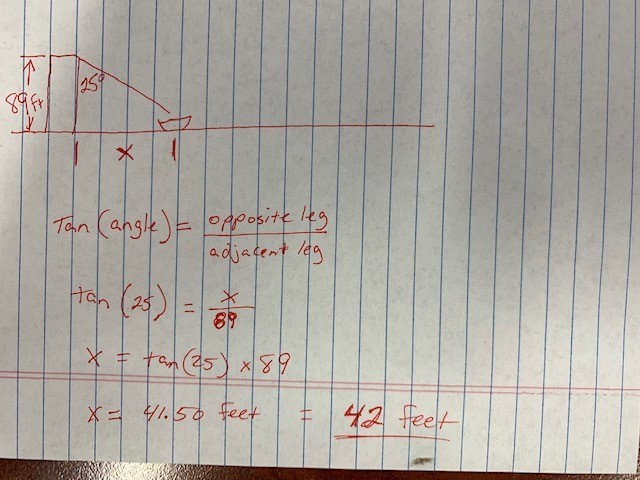 25°
89 ft
x
Tan (angle) = opposite leg
adjacent leg
tan (25) = x
89
x = tan(25) × 89
x = 41.50 feet = 42 feet